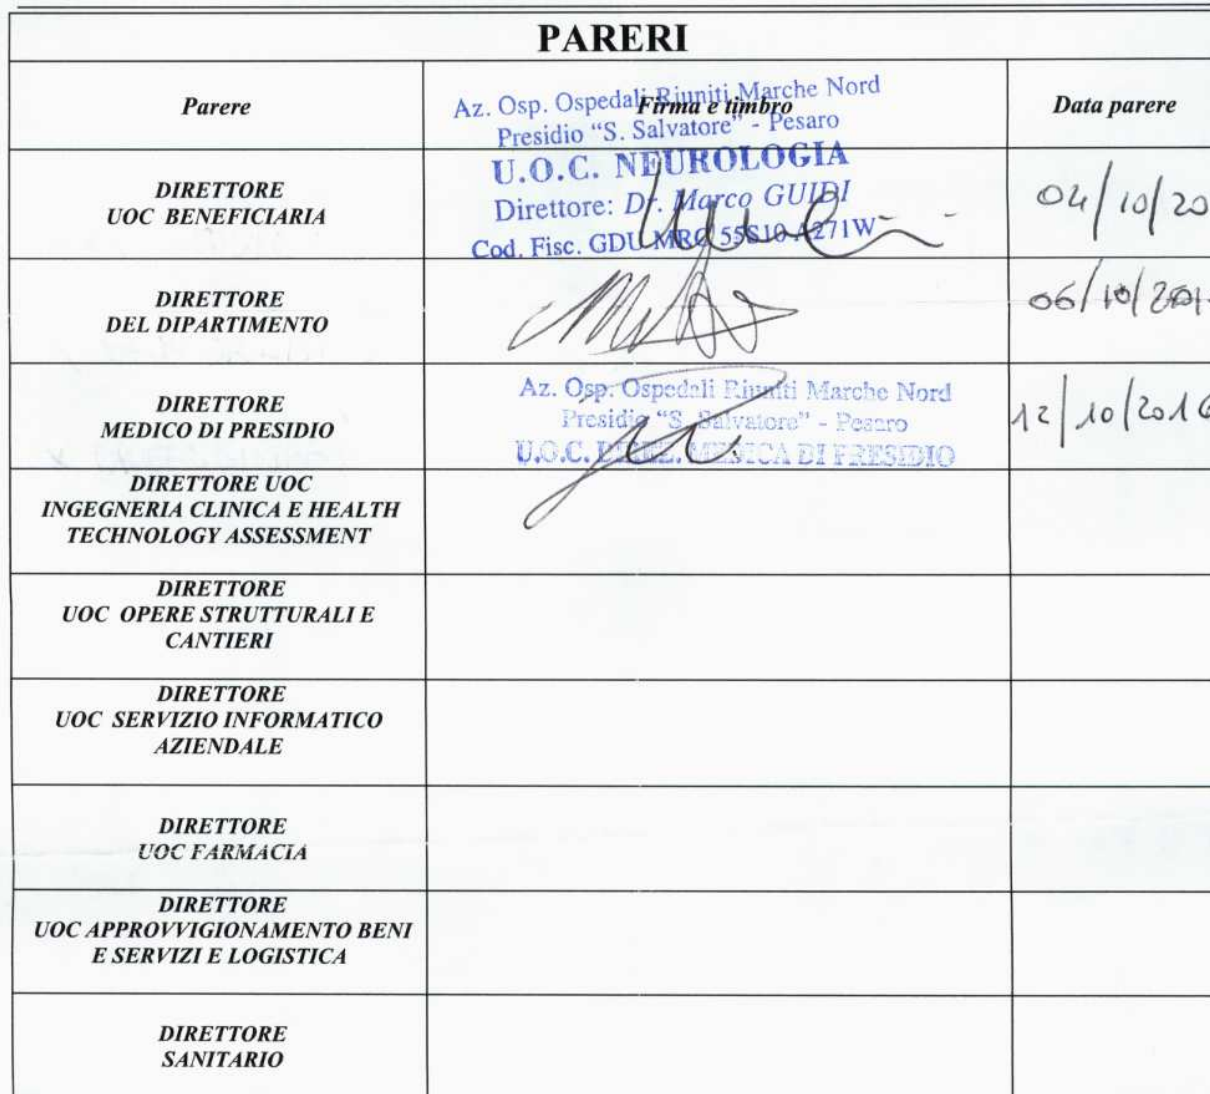 PARERI
Parere
Firma e timbro
Data parere
Az. Osp. Ospedali Riuniti Marche Nord
Presidio "S. Salvatore" - Pesaro
U.O.C. NEUROLOGIA
Direttore: Dr. Marco GUIDI
Cod. Fisc. GDU MRC 55S10 A271W
DIRETTORE
UOC BENEFICIARIA
04/10/20
DIRETTORE
DEL DIPARTIMENTO
06/10/201
DIRETTORE
MEDICO DI PRESIDIO
Az. Osp. Ospedali Riuniti Marche Nord
Presidio "S. Salvatore" - Pesaro
U.O.C. DIREZ. MEDICA DI PRESIDIO
12/10/2016
DIRETTORE UOC
INGEGNERIA CLINICA E HEALTH
TECHNOLOGY ASSESSMENT
DIRETTORE
UOC OPERE STRUTTURALI E
CANTIERI
DIRETTORE
UOC SERVIZIO INFORMATICO
AZIENDALE
DIRETTORE
UOC FARMACIA
DIRETTORE
UOC APPROVVIGIONAMENTO BENI
E SERVIZI E LOGISTICA
DIRETTORE
SANITARIO